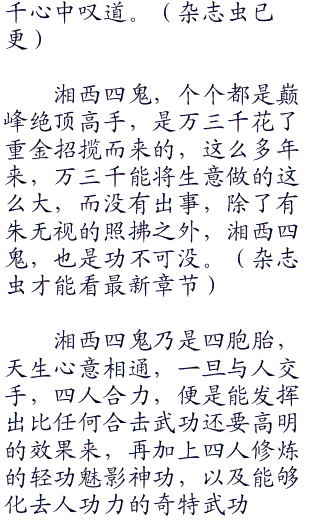 千心中叹道。（杂志虫已
更）
湘西四鬼，个个都是巅
峰绝顶高手，是万三千花了
重金招揽而来的，这么多年
来，万三千能将生意做的这
么大，而没有出事，除了有
朱无视的照拂之外，湘西四
鬼，也是功不可没。（杂志
虫才能看最新章节）
湘西四鬼乃是四胞胎，
天生心意相通，一旦与人交
手，四人合力，便是能发挥
出比任何合击武功还要高明
的效果来，再加上四人修炼
的轻功魅影神功，以及能够
化去人功力的奇特武功